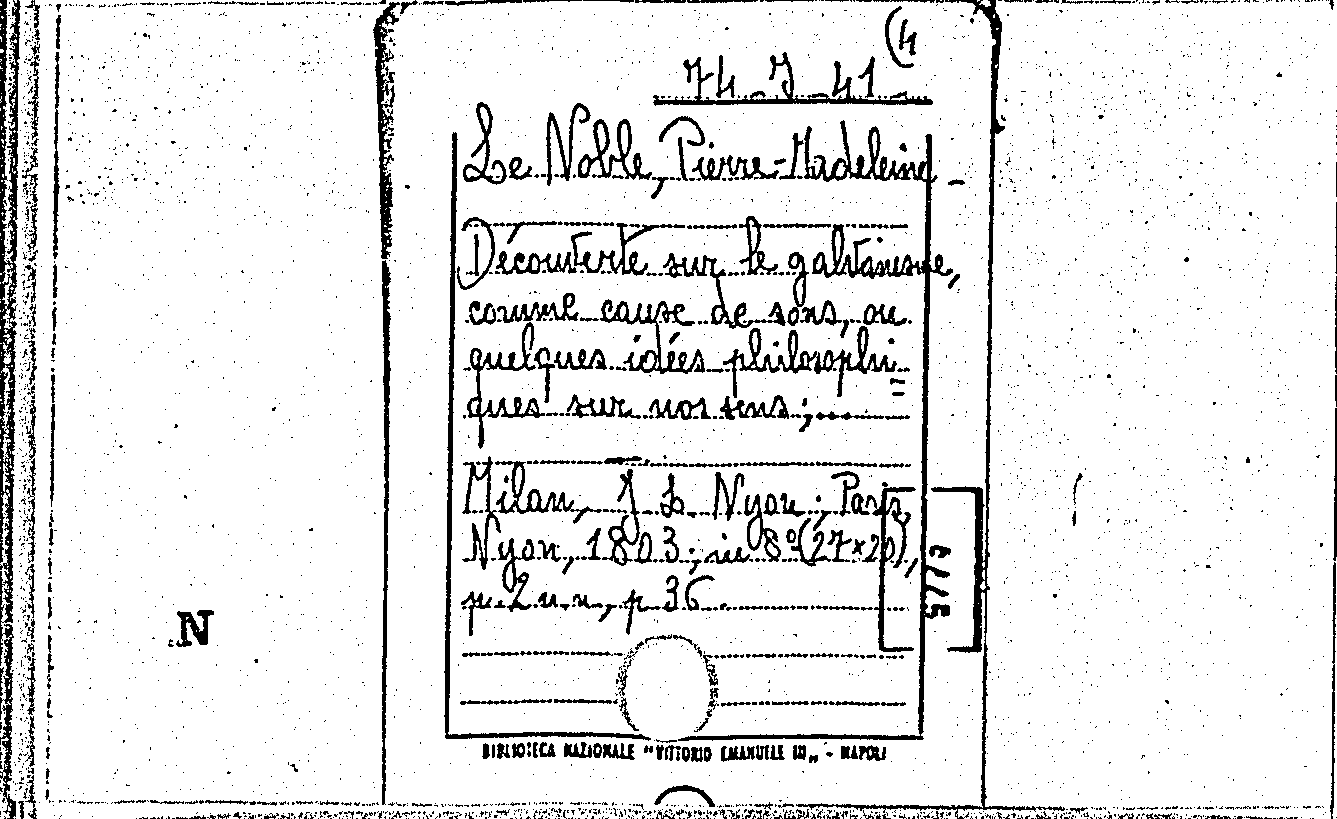 74_J_41 (4
Le Noble, Pierre-Madeleine_
Découverte sur le galvanisme,
comme cause de sons, ou
quelques idées philosophi=
ques sur nos sens;...
Milan, J. L. Nyon; Paris,
Nyon, 1803; in 8º(27×20),
p. 2 n. n., p 36.
N
BIBLIOTECA NAZIONALE "VITTORIO EMANUELE III„ - NAPOLI